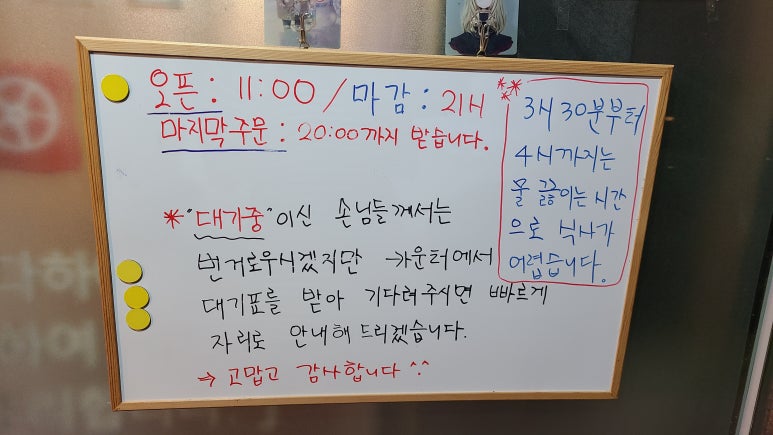 오픈: 11:00 / 마감: 21시
마지막주문: 20:00까지 받습니다.
3시 30분부터
4시까지는
물 끓이는 시간
으로 식사가
어렵습니다.
* "대기중"이신 손님들께서는
번거로우시겠지만 →카운터에서
대기표를 받아 기다려주시면 빠르게
자리로 안내해 드리겠습니다.
→ 고맙고 감사합니다 ^^